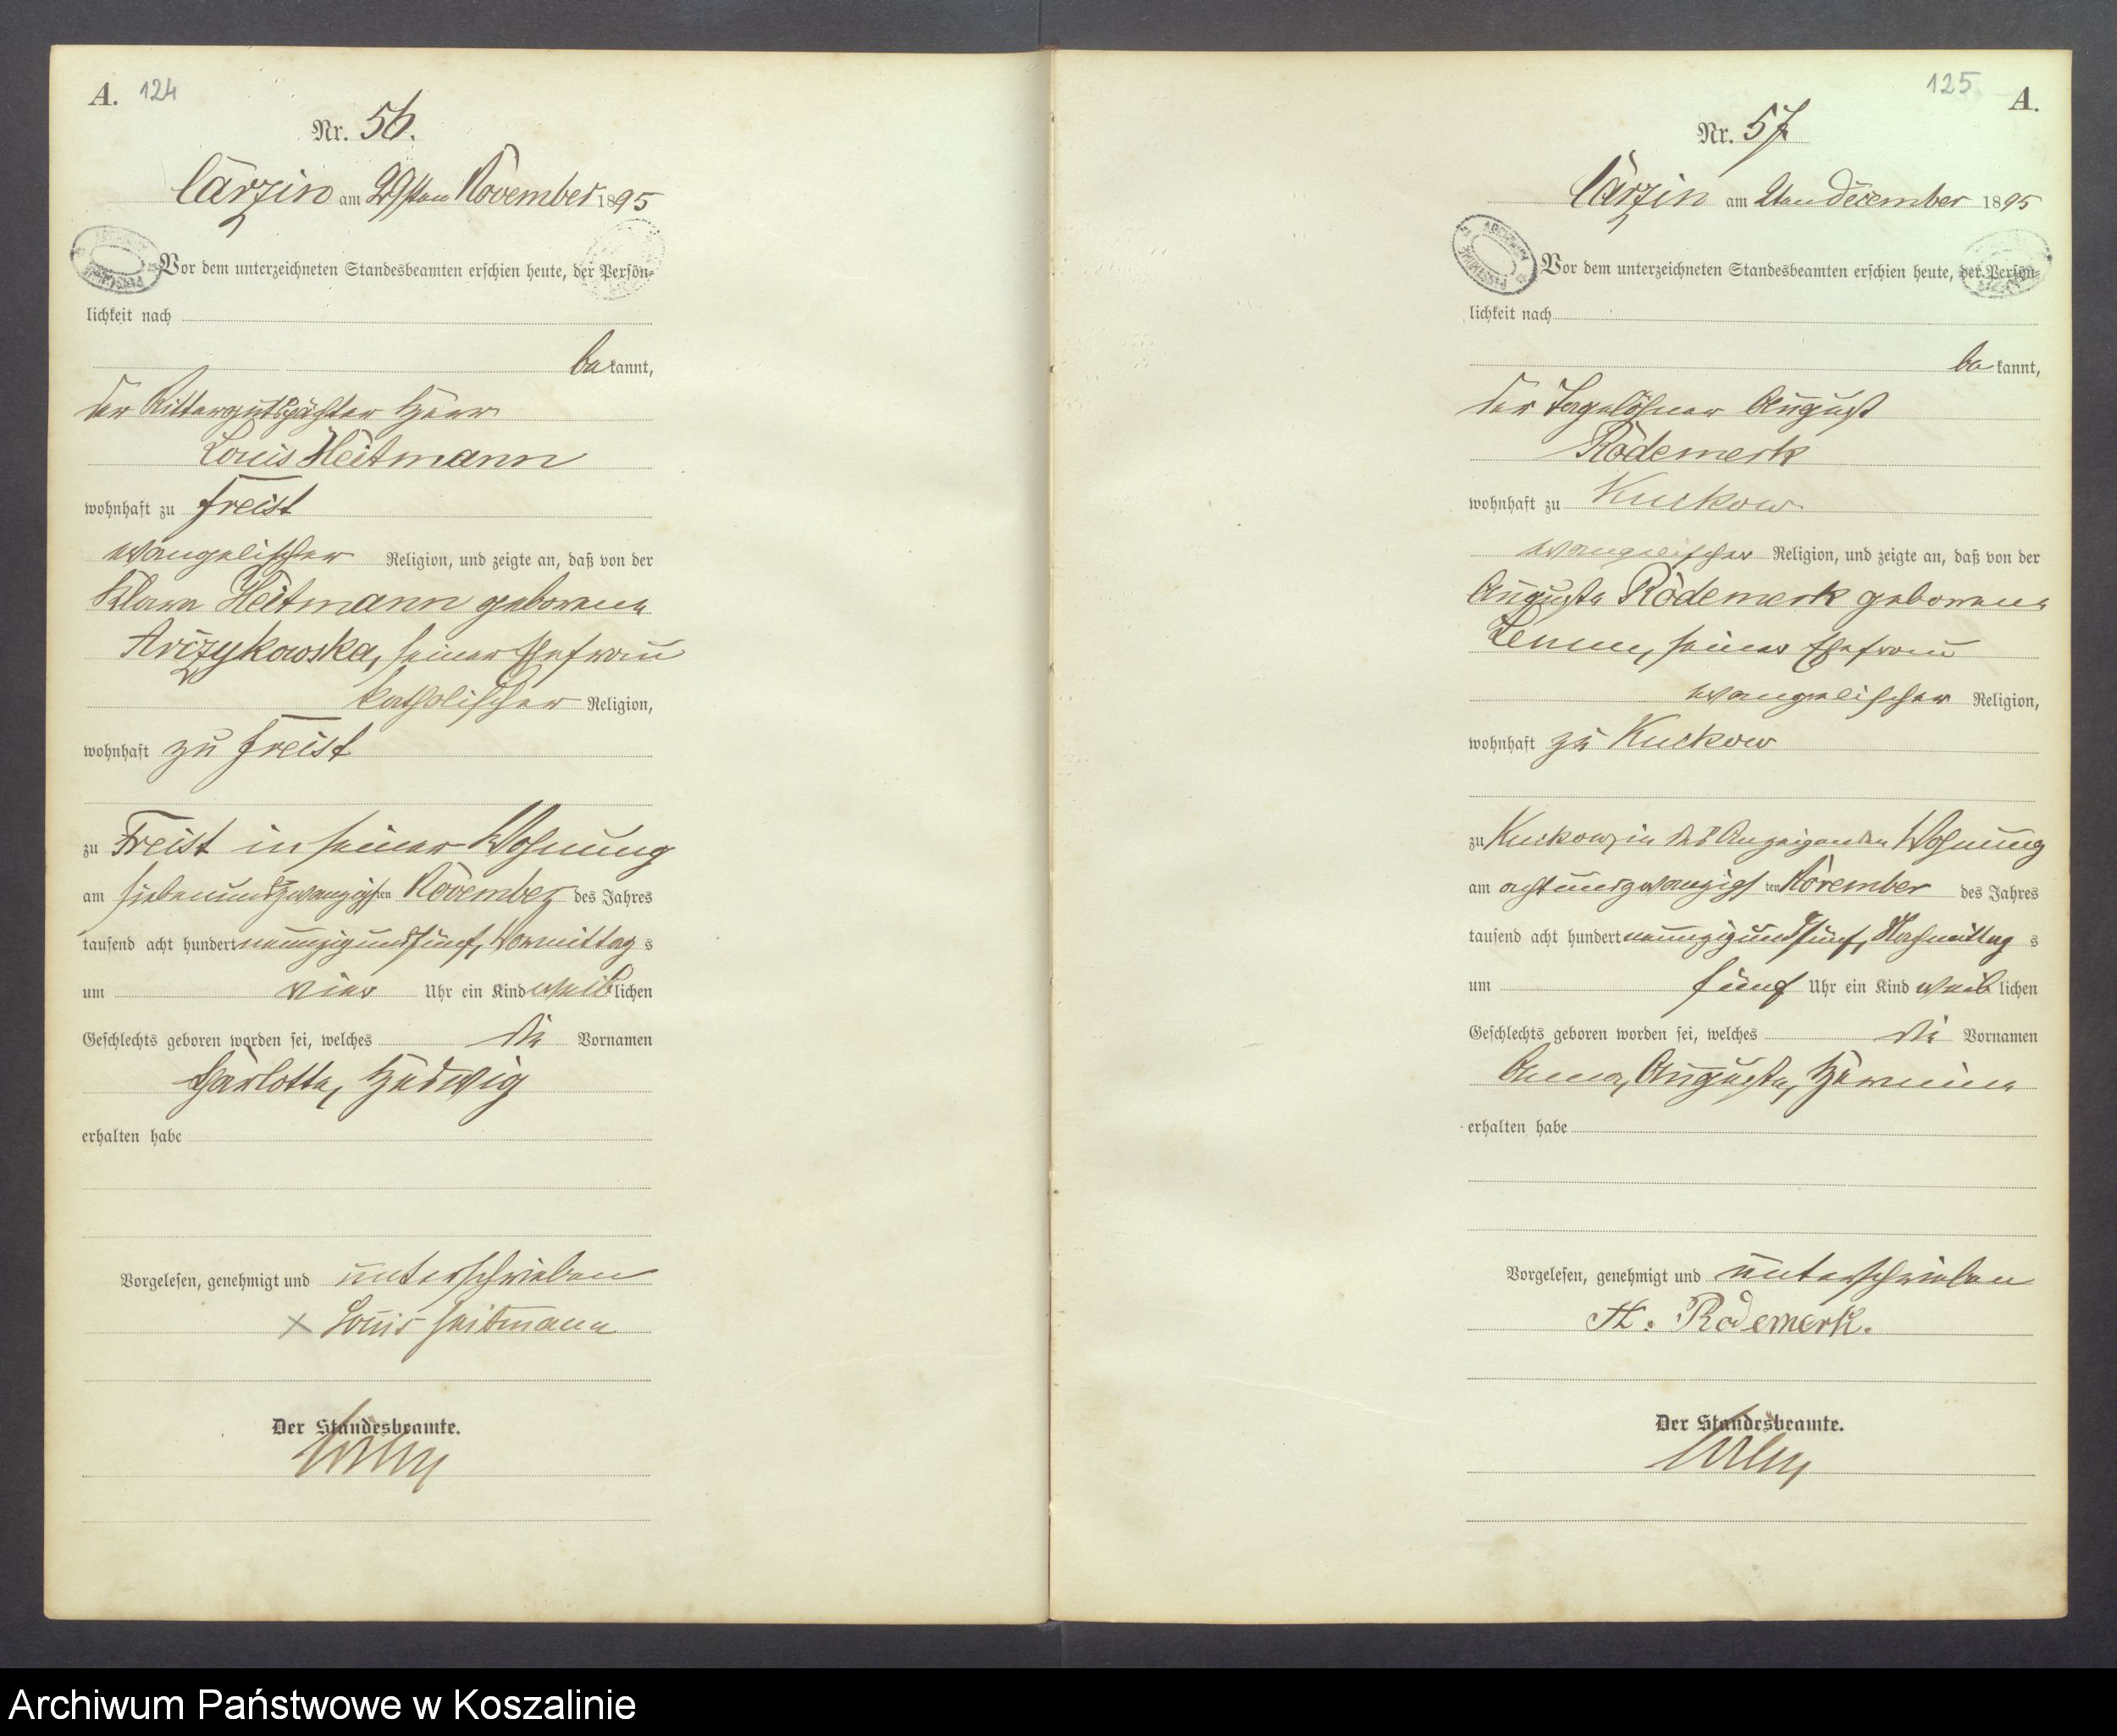 A. 124
Nr. 56.
Carzin am 29sten November 1895
Vor dem unterzeichneten Standesbeamten erschien heute, der Persön-
lichkeit nach
bekannt,
der Rittergutspächter Herr
Louis Heitmann
wohnhaft zu Freist
evangelischer Religion, und zeigte an, daß von der
Klara Heitmann geborene
Arczykowska, seiner Ehefrau
katholischer Religion,
wohnhaft zu Freist
zu Freist in seiner Wohnung
am siebenundzwanzigsten November des Jahres
tausend acht hundert neunzig und fünf, Vormittags
um vier Uhr ein Kind weiblichen
Geschlechts geboren worden sei, welches die Vornamen
Charlotte, Hedwig
erhalten habe
Vorgelesen, genehmigt und unterschrieben
x Louis Heitmann
Der Standesbeamte.
125 A.
Nr. 57
Carzin am 2ten December 1895
Vor dem unterzeichneten Standesbeamten erschien heute, der Persön-
lichkeit nach
bekannt,
der Tagelöhner August
Rodemerk
wohnhaft zu Kuckow
evangelischer Religion, und zeigte an, daß von der
Auguste Rodemerk geborene
seiner Ehefrau
evangelischer Religion,
wohnhaft zu Kuckow
zu Kuckow, in des Anzeigenden Wohnung
am achtundzwanzigsten November des Jahres
tausend acht hundert neunzig und fünf, Nachmittags
um fünf Uhr ein Kind weiblichen
Geschlechts geboren worden sei, welches die Vornamen
Anna, Auguste, Hermine
erhalten habe
Vorgelesen, genehmigt und unterschrieben
A. Rodemerk.
Der Standesbeamte.
Archiwum Państwowe w Koszalinie